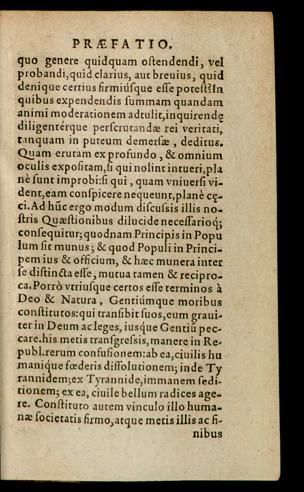 PRÆFATIO.
quo genere quidquam ostendendi, vel
probandi, quid clarius, aut breuius, quid
denique certius firmiúsque esse potest? In
quibus expendendis summam quandam
animi moderationem adtulit, inquirendę
diligentérque perscrutandæ rei veritati,
tanquam in puteum demersæ, deditus.
Quam erutam ex profundo, & omnium
oculis expositam, si qui nolint intueri, pla
nè sunt improbi: si qui, quam vniuersi vi-
dent, eam conspicere nequeunt, planè cę-
ci. Ad hũc ergo modum discussis illis no-
stris Quæstionibus dilucide necessarioq;
consequitur; quodnam Principis in Popu
lum sit munus; & quod Populi in Princi-
pem ius & officium, & hæc munera inter
se distincta esse, mutua tamen & recipro-
ca. Porrò vtriusque certos esse terminos à
Deo & Natura, Gentiúmque moribus
constitutos: qui transibit suos, eum graui-
ter in Deum ac leges, iusque Gentiũ pec-
care. his metis transgressis, manere in Re-
publ. rerum confusionem: ab ea, ciuilis hu
manique fœderis dissolutionem; inde Ty
rannidem; ex Tyrannide, immanem sedi-
tionem; ex ea, ciuile bellum radices age-
re. Constituto autem vinculo illo huma-
næ societatis firmo, atque metis illis ac fi-
nibus